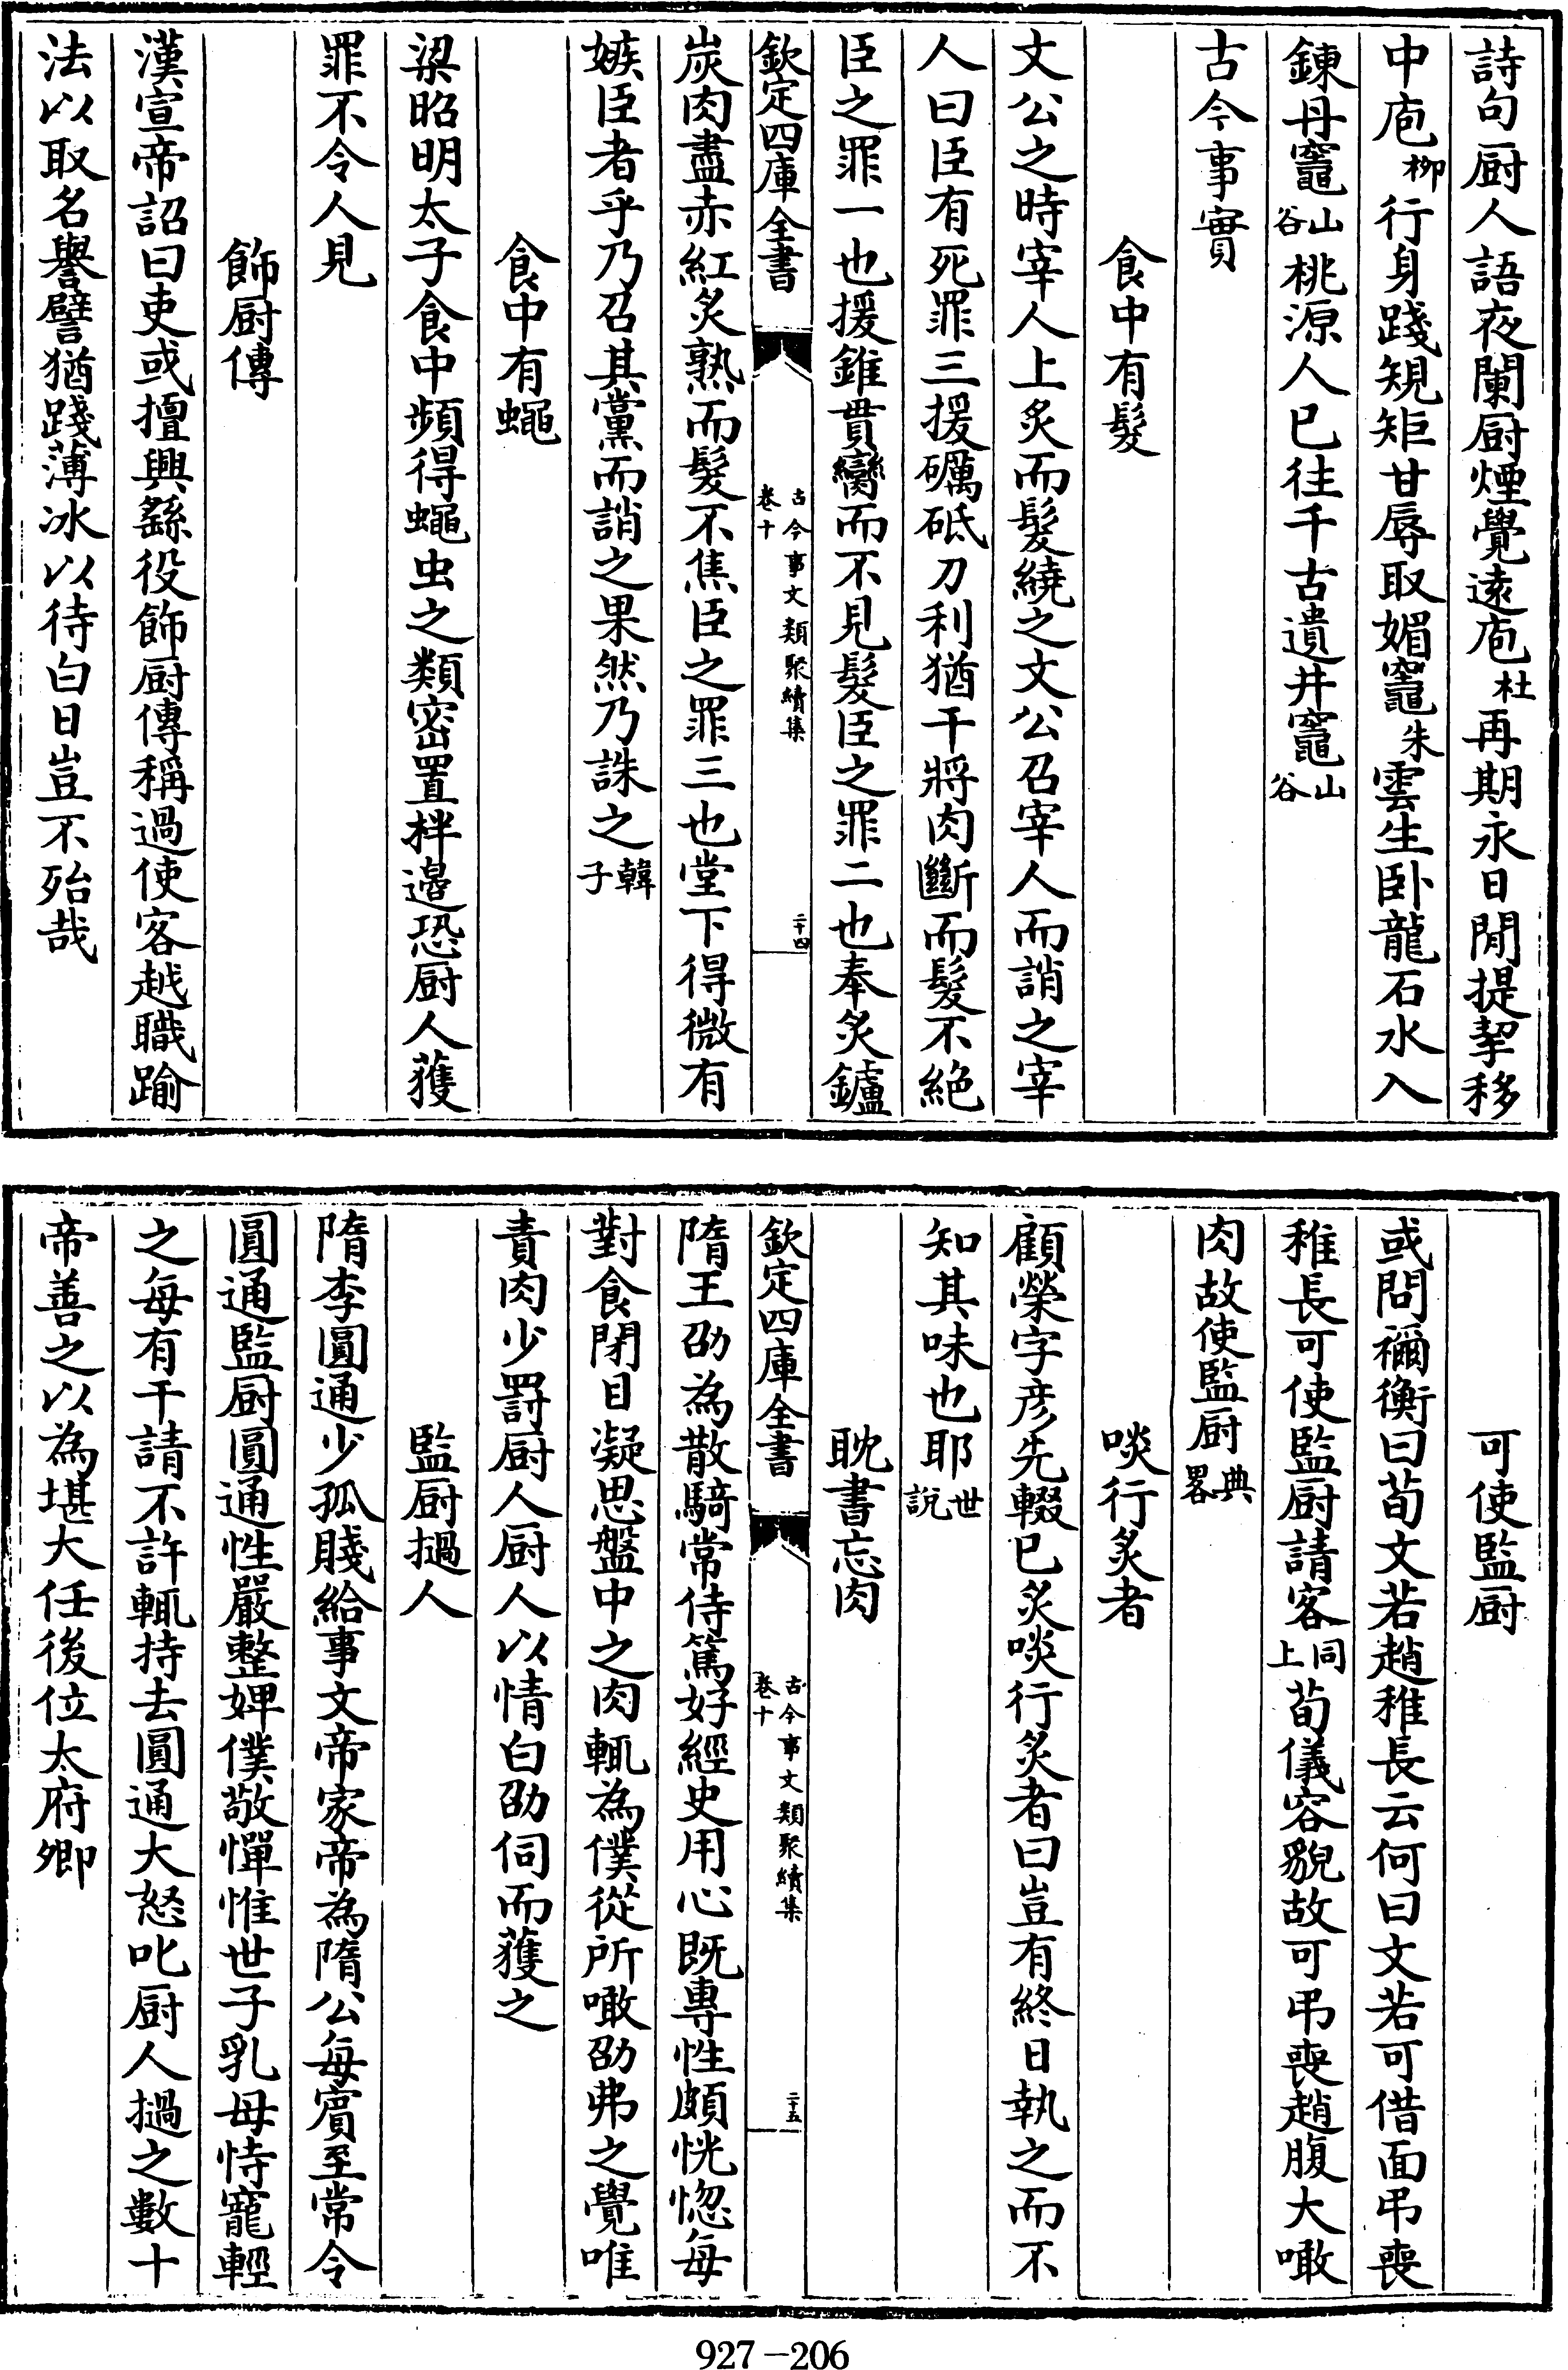 詩句厨人語夜闌厨煙覺遠庖杜再期永日閒提挈移
中庖柳行身踐䂓矩甘辱取媚竈朱雲生卧龍石水入
鍊丹竈山谷桃源人已往千古遺井竈山谷
古今事實
食中有髮
文公之時宰人上炙而髮繞之文公召宰人而誚之宰
人曰臣有死罪三援礪砥刀利猶干將肉斷而髮不絕
臣之罪一也援錐貫臠而不見髮臣之罪二也奉炙鑪
欽定四庫全書
古今事文類聚續集
卷十
二十四
炭肉盡赤紅炙熟而髮不焦臣之罪三也堂下得微有
嫉臣者乎乃召其黨而誚之果然乃誅之韓子
食中有蠅
梁昭明太子食中頻得蠅虫之類密置拌邉恐厨人獲
罪不令人見
飾厨傳
漢宣帝詔曰吏或擅興繇役飾厨傳稱過使客越職踰
法以取名譽譬猶踐薄冰以待白日豈不殆哉
可使監厨
或問禰衡曰荀文若趙稚長云何曰文若可借面弔喪
稚長可使監厨請客同上荀儀容貌故可弔喪趙腹大噉
肉故使監厨典畧
啖行炙者
顧榮字彦先輟已炙啖行炙者曰豈有終日執之而不
知其味也耶世說
耽書忘肉
欽定四庫全書
古今事文類聚續集
卷十
二十五
隋王劭為散騎常侍篤好經史用心既專性頗恍惚每
對食閉目凝思盤中之肉輒為僕從所噉劭弗之覺唯
責肉少罰厨人厨人以情白劭伺而獲之
監厨撾人
隋李圓通少孤賤給事文帝家帝為隋公每賔至常令
圓通監厨圓通性嚴整婢僕敬憚惟世子乳母恃寵輕
之每有干請不許輒持去圓通大怒叱厨人撾之數十
帝善之以為堪大任後位太府卿
927-206